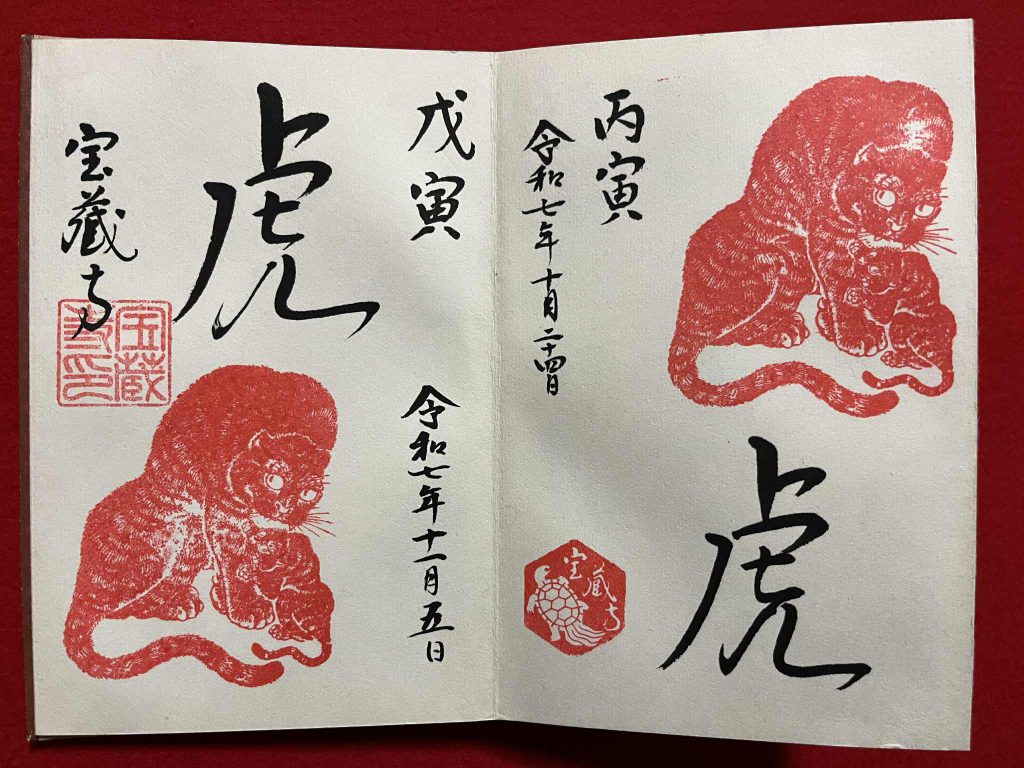 丙寅
令和七年十月二十四日
虎
宝蔵寺
戊寅
虎
令和七年十一月五日
宝蔵寺
宝蔵
寺印